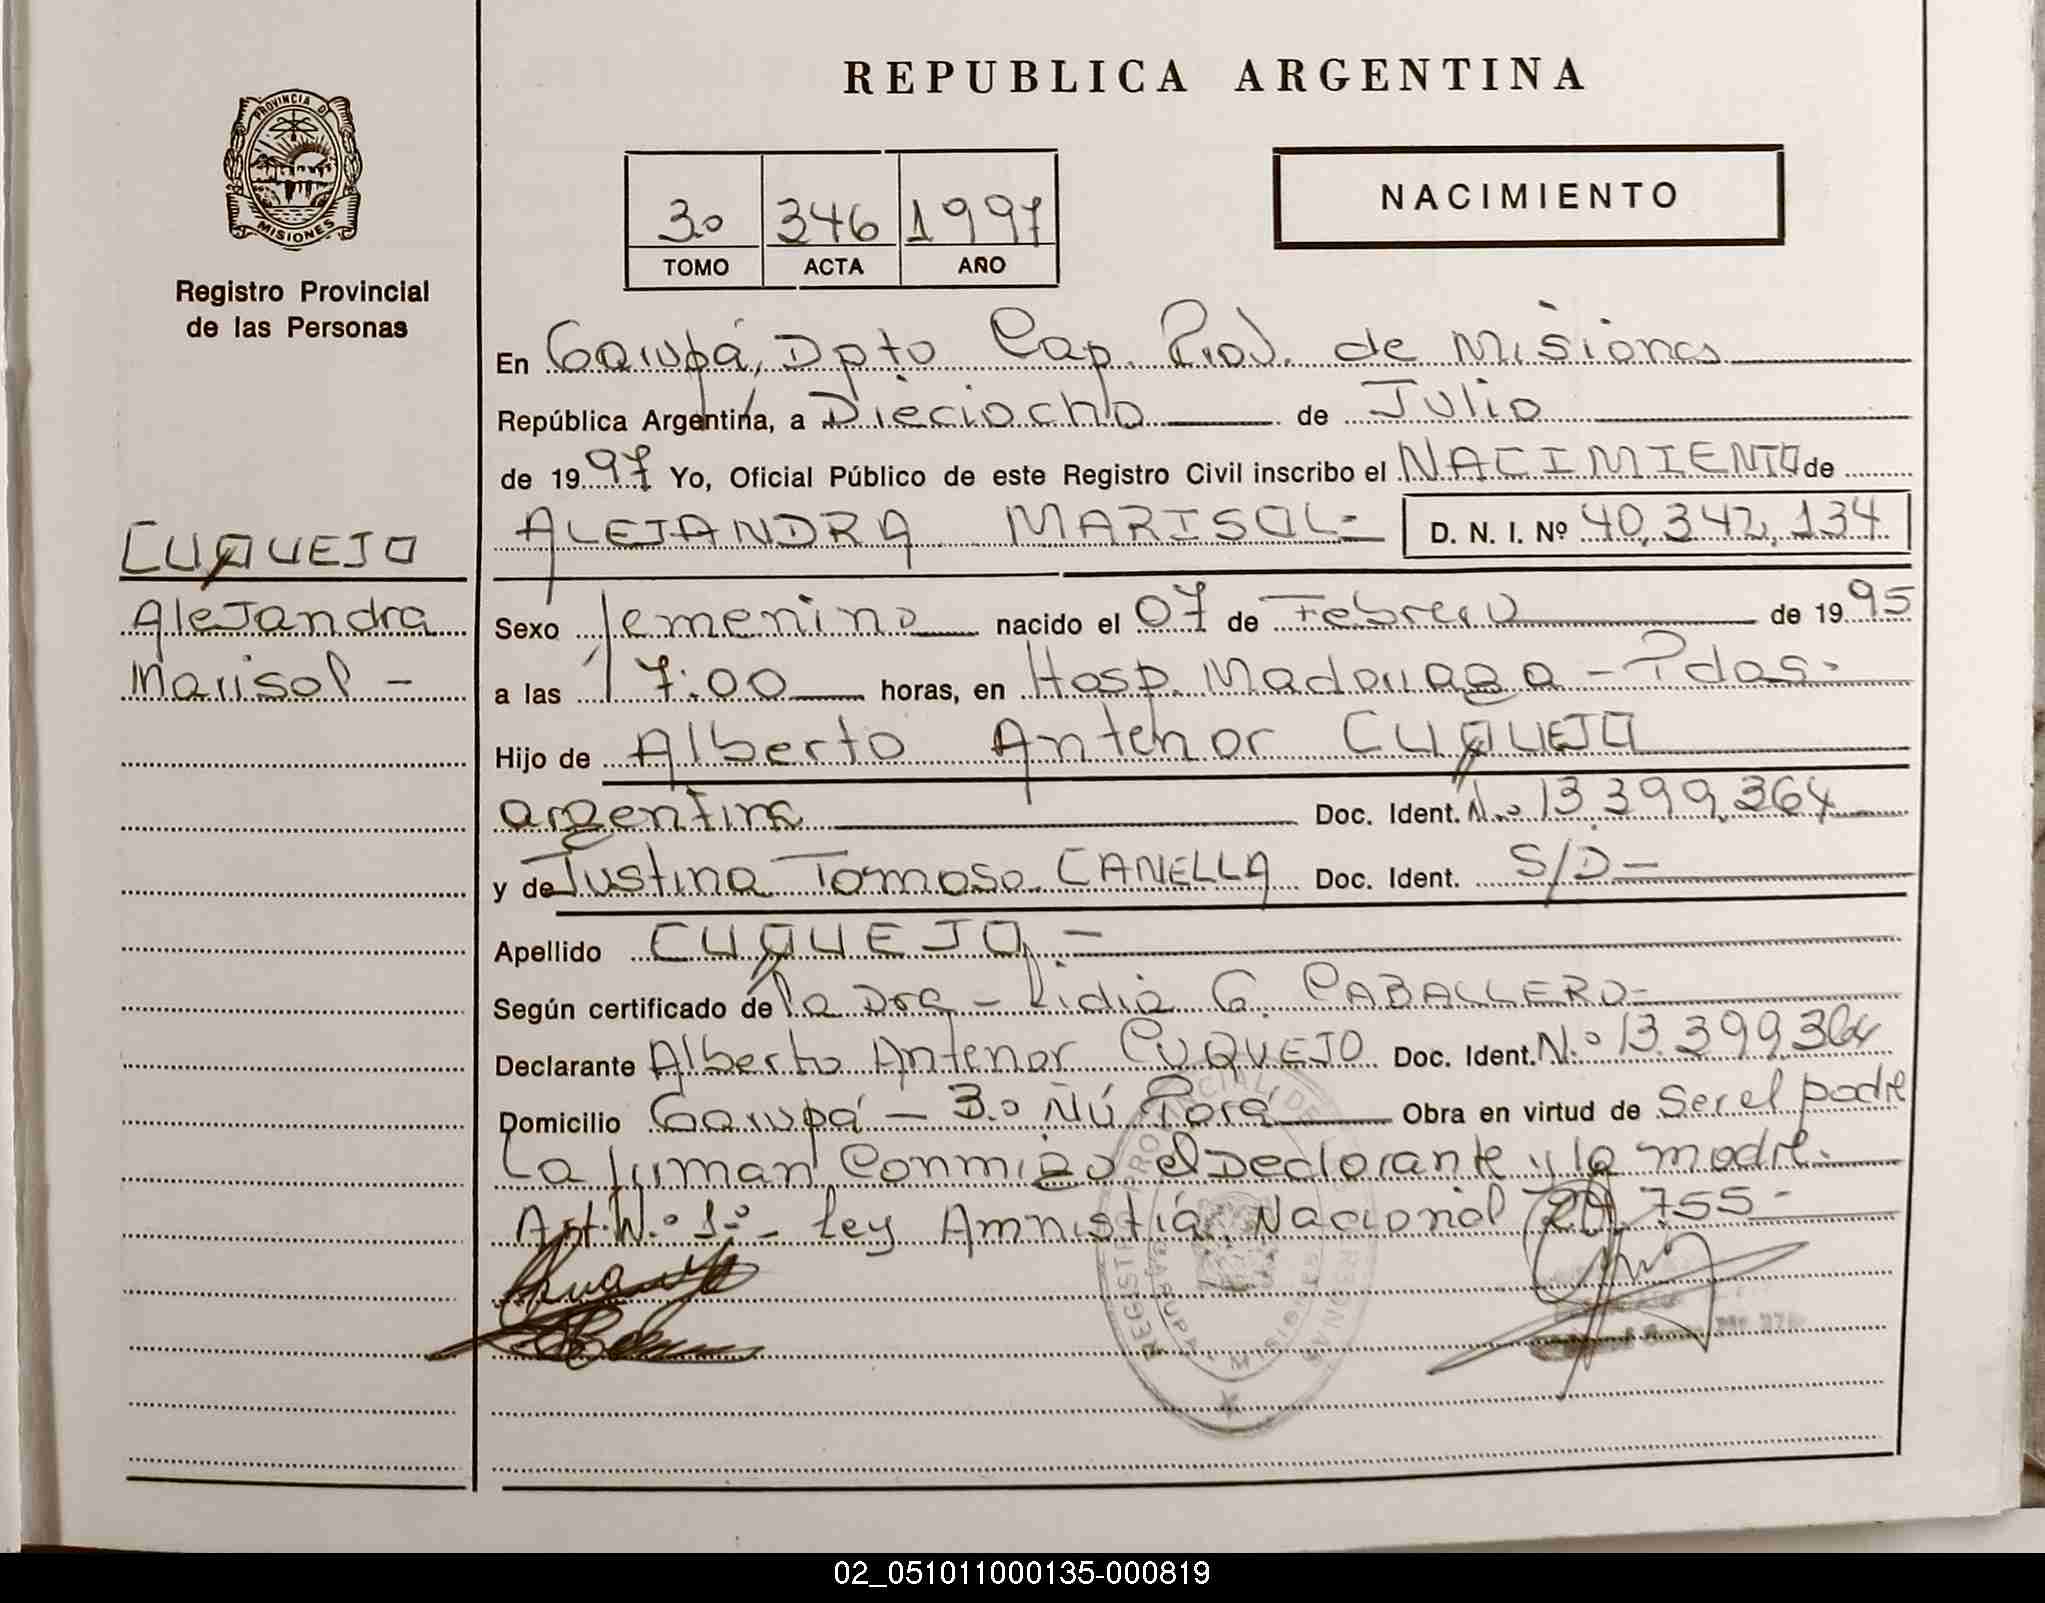 REPUBLICA ARGENTINA
PROVINCIA DE MISIONES
Registro Provincial
de las Personas
3º 346 1997
TOMO ACTA AÑO
NACIMIENTO
En Garupá, Dpto Cap. Prov. de Misiones
República Argentina, a Dieciocho de Julio
de 1997 Yo, Oficial Público de este Registro Civil inscribo el NACIMIENTO de
ALEJANDRA MARISOL= D. N. I. Nº 40.342.134
CUQUEJO
Alejandra
Marisol -
Sexo femenino nacido el 07 de Febrero de 1995
a las 17:00 horas, en Hosp. Madariaga - Pdas.
Hijo de Alberto Antenor CUQUEJO
argentina Doc. Ident. N.º 13.399.364
y de Justina Tomasa CANELLA Doc. Ident. S/D-
Apellido CUQUEJO, -
Según certificado de la Dra - Lidia G. CABALLERO=
Declarante Alberto Antenor CUQUEJO Doc. Ident. N.º 13.399.364
Domicilio Garupá - B.º Ñú Porá Obra en virtud de Ser el padre
La firman Conmigo el Declarante y la madre.
Art. N.º 1º - Ley Amnistía Nacional 20.755-
02_051011000135-000819